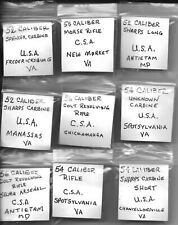 52 CALIBER
SPENCER CARBINE
U.S.A.
FREDERICKSBURG
VA
50 CALIBER
MORSE RIFLE
C.S.A.
NEW MARKET
VA
52 CALIBER
SHARPS LONG
U.S.A.
ANTIETAM
MD
52 CALIBER
SHARPS CARBINE
U.S.A.
MANASSAS
VA
56 CALIBER
COLT REVOLVING
RIFLE
C.S.A.
CHICKAMAUGA
54 CALIBER
UNKNOWN
CARBINE
U.S.A.
SPOTSYLVANIA
VA
56 CALIBER
COLT REVOLVING
RIFLE
SELMA ARSENAL
C.S.A.
ANTIETAM
MD
54 CALIBER
RIFLE
C.S.A.
SPOTSYLVANIA
VA
52 CALIBER
SHARPS CARBINE
SHORT
U.S.A.
CHANCELLORVILLE
VA